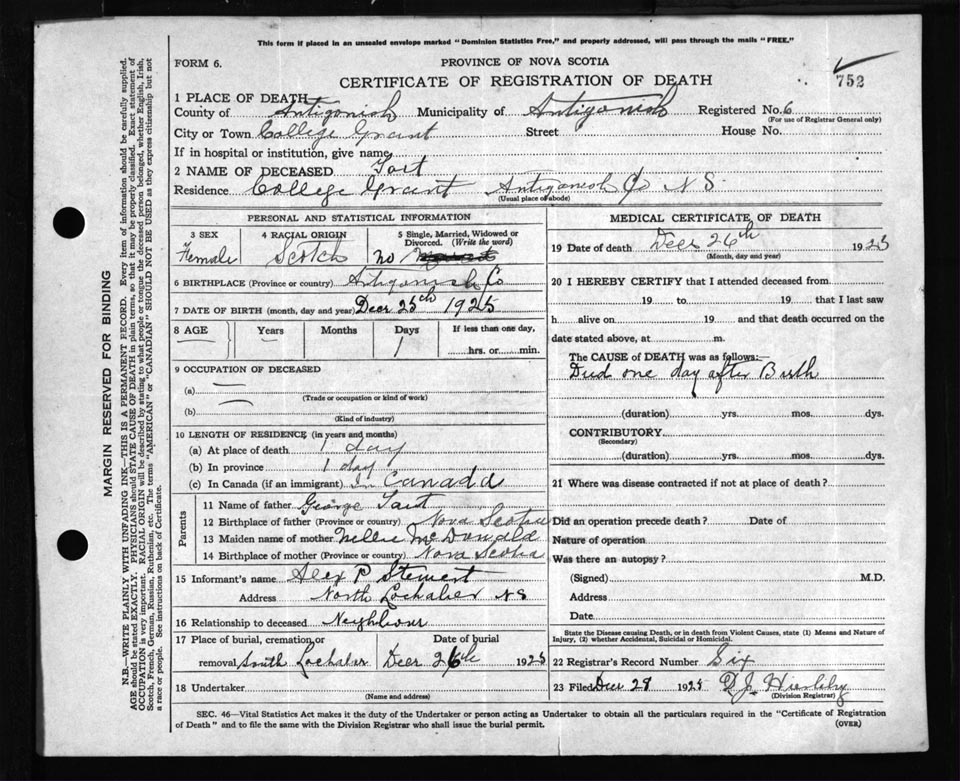 This form if placed in an unsealed envelope marked "Dominion Statistics Free," and properly addressed, will pass through the mails "FREE."
FORM 6.
PROVINCE OF NOVA SCOTIA
CERTIFICATE OF REGISTRATION OF DEATH
752
1 PLACE OF DEATH
County of Antigonish Municipality of Antigonish Registered No. 6
(For use of Registrar General only)
City or Town College Grant Street House No.
If in hospital or institution, give name
2 NAME OF DECEASED Tait
Residence College Grant Antigonish Co N S.
(Usual place of abode)
PERSONAL AND STATISTICAL INFORMATION
3 SEX 4 RACIAL ORIGIN 5 Single, Married, Widowed or Divorced. (Write the word)
Female Scotch no
6 BIRTHPLACE (Province or country) Antigonish Co
7 DATE OF BIRTH (month, day and year) Decr 25th 1925
8 AGE Years Months Days If less than one day,
1 hrs. or min.
9 OCCUPATION OF DECEASED
(a)
(Trade or occupation or kind of work)
(b)
(Kind of industry)
10 LENGTH OF RESIDENCE (in years and months)
(a) At place of death 1 day
(b) In province 1 day
(c) In Canada (if an immigrant) In Canada
Parents
11 Name of father George Tait
12 Birthplace of father (Province or country) Nova Scotia
13 Maiden name of mother Nellie McDonald
14 Birthplace of mother (Province or country) Nova Scotia
15 Informant's name Alex P Stewart
Address North Lochaber NS
16 Relationship to deceased Neighbour
17 Place of burial, cremation, or Date of burial
removal South Lochaber Decr 26th 1925
18 Undertaker
(Name and address)
MEDICAL CERTIFICATE OF DEATH
19 Date of death Decr 26th 1925
(Month, day and year)
20 I HEREBY CERTIFY that I attended deceased from
19 to 19 that I last saw
h alive on 19 and that death occurred on the
date stated above, at m.
The CAUSE of DEATH was as follows:—
Died one day after Birth
(duration) yrs. mos. dys.
CONTRIBUTORY
(Secondary)
(duration) yrs. mos. dys.
21 Where was disease contracted if not at place of death?
Did an operation precede death? Date of
Nature of operation
Was there an autopsy?
(Signed) M.D.
Address
Date
State the Disease causing Death, or in death from Violent Causes, state (1) Means and Nature of Injury, (2) whether Accidental, Suicidal or Homicidal.
22 Registrar's Record Number Six
23 Filed Decr 28 1925 D J
(Division Registrar)
SEC. 46—Vital Statistics Act makes it the duty of the Undertaker or person acting as Undertaker to obtain all the particulars required in the "Certificate of Registration
of Death" and to file the same with the Division Registrar who shall issue the burial permit.
(OVER)
MARGIN RESERVED FOR BINDING
N.B.—WRITE PLAINLY WITH UNFADING INK—THIS IS A PERMANENT RECORD. Every item of information should be carefully supplied.
AGE should be stated EXACTLY. PHYSICIANS should STATE CAUSE OF DEATH in plain terms, so that it may be properly classified. Exact statement of
OCCUPATION is very important. RACIAL ORIGIN will be described by stating to what people or tongue the deceased person belonged, whether English, Irish,
Scotch, French, German, Russian, Ruthenian, etc. The terms "AMERICAN" or "CANADIAN" SHOULD NOT BE USED as they express citizenship but not
a race or people. See instructions on back of Certificate.